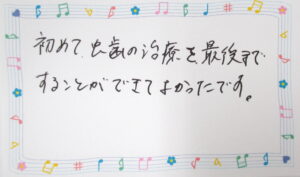 初めて、虫歯の治療を最後まで
することができてよかったです。